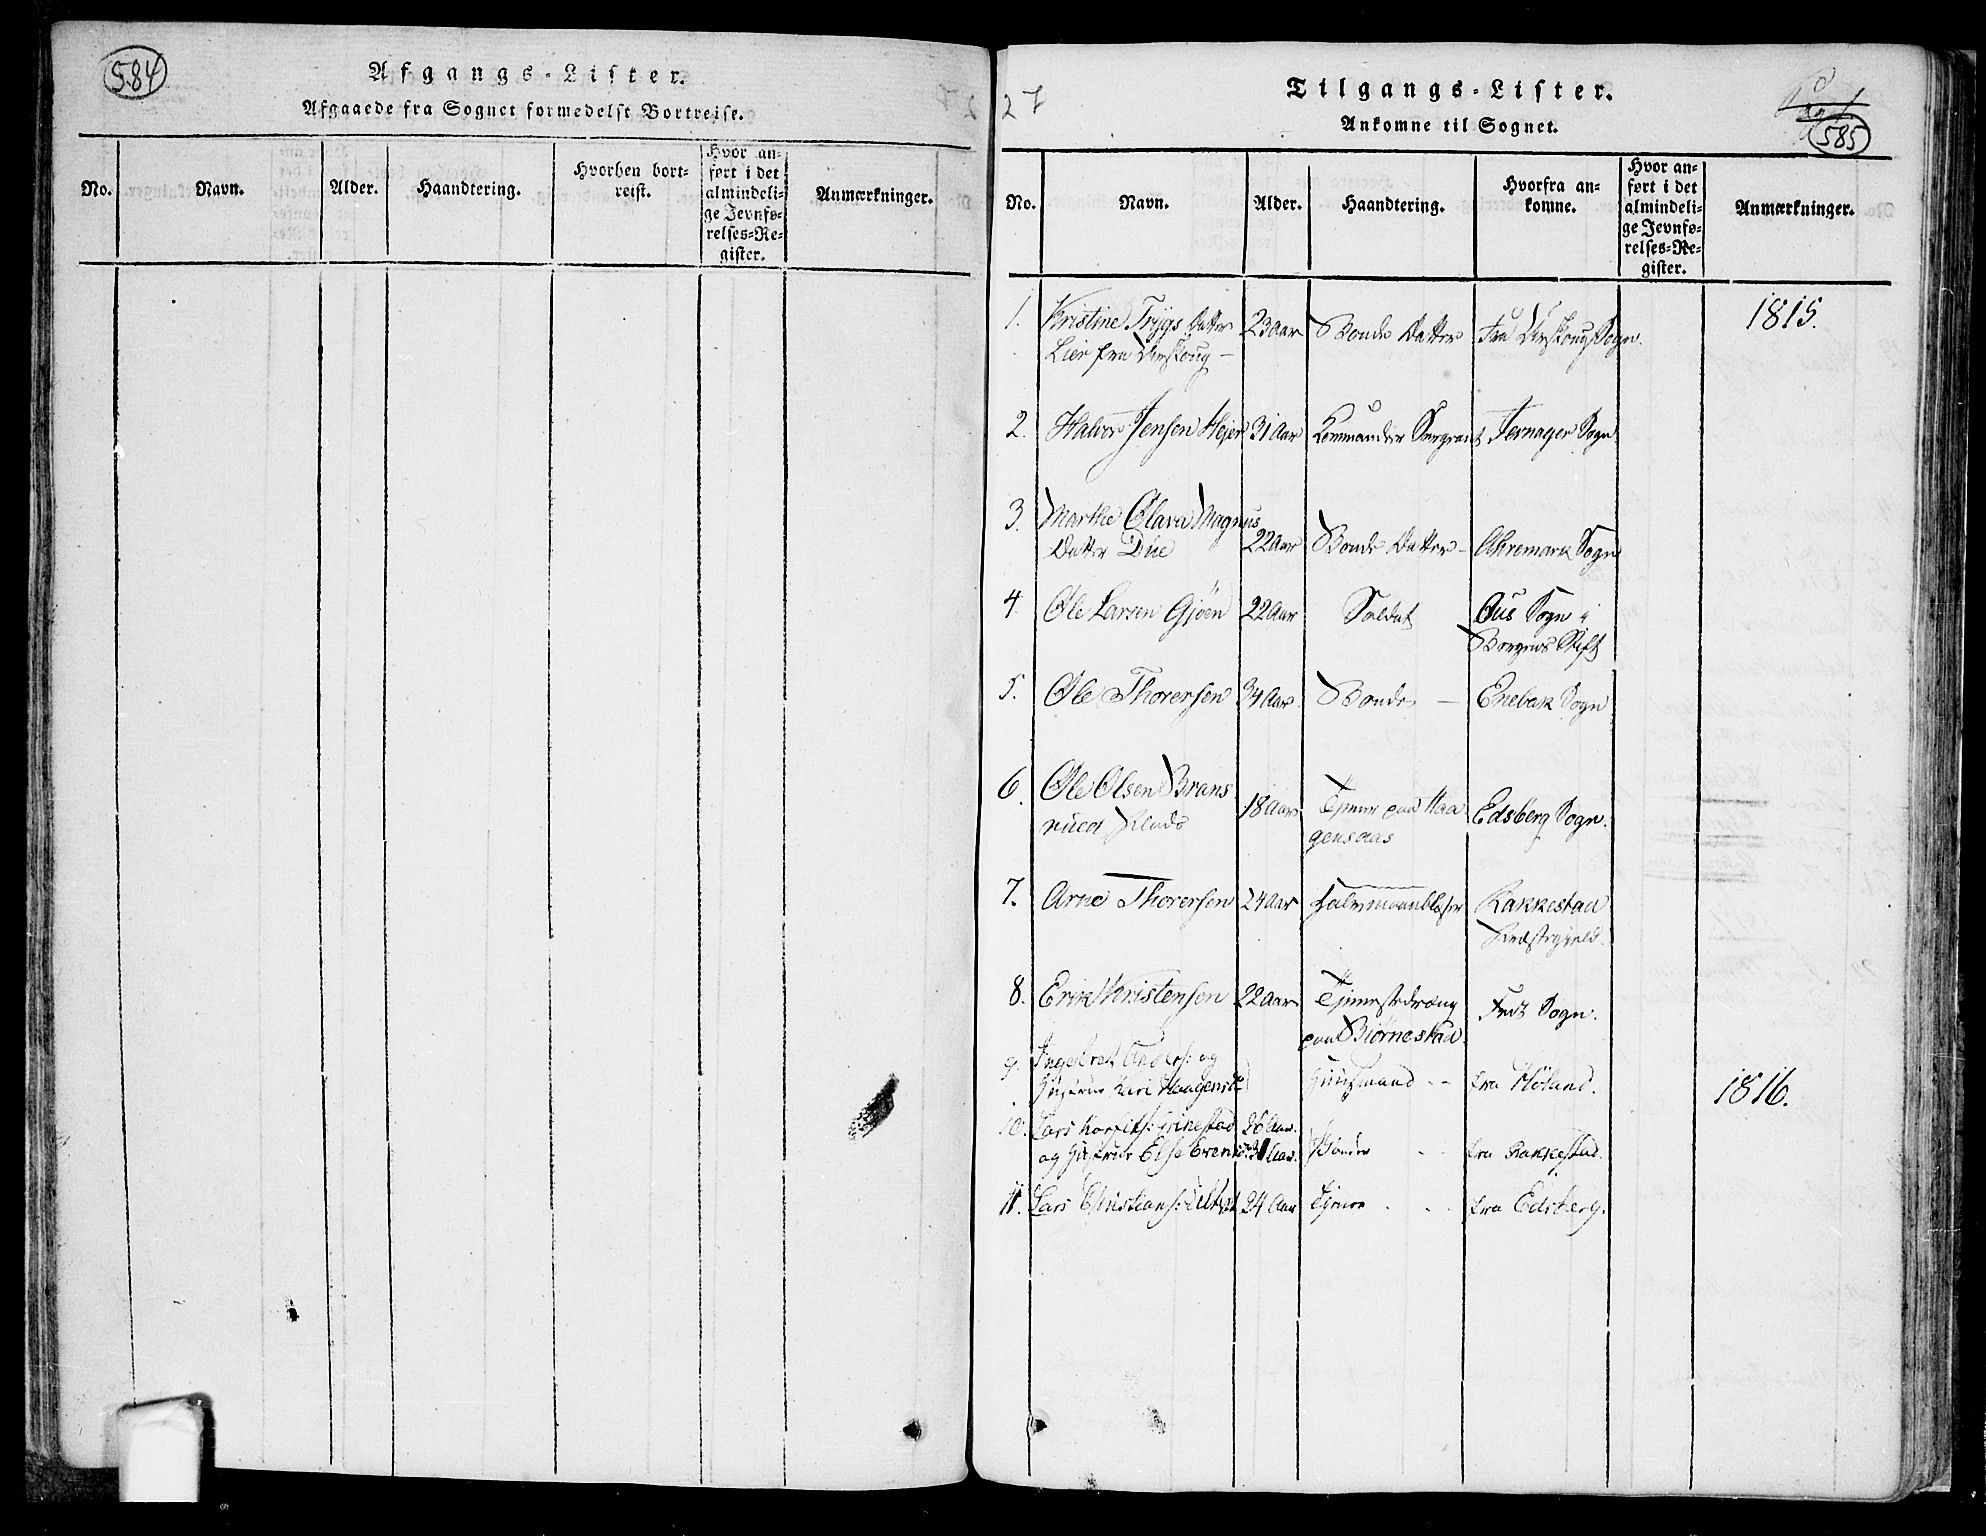 584
Afgangs-Lister.
Afgaaede fra Sognet formedelst Bortreise.
No.
Navn.
Alder.
Haandtering.
Hvorhen bort-
reist.
Hvor an-
ført i det
almindeli-
ge Jevnfø-
relses-Re-
gister.
Anmærkninger.
27
Tilgangs-Lister.
Ankomne til Sognet.
585
No.
Navn.
Alder.
Haandtering.
Hvorfra an-
komne.
Hvor an-
ført i det
almindeli-
ge Jevnfø-
relses-Re-
gister.
Anmærkninger.
1. Kristine Trygs Datter 23 Aar Bonde Datter fra Urskoug Sogn 1815.
Lier fra Urskoug
2. Halvor Jensen Hejer 31 Aar Commander Sergeant Jevnager Sogn
3. Marthe Olava Magnus
Datter Due 22 Aar Bonde Datter Ahremark Sogn
4 Ole Larsen Gjøen 22 Aar Soldat Aus Sogn i
Bergens Stift
5. Ole Thoresen 34 Aar Bonde Enebak Sogn
6. Ole Olsen Brans
rued 18 Aar Tjener paa Haa
gensaas Edsberg Sogn.
7. Arne Thoresen 24 Aar halvmaanblæser Rakkestad
Præstegjeld.
8. Erik Kristensen 22 Aar Tjenestedræng
paa Biørnestad Sogn.
9. Ingebret Anders: og
Hustrue Kari Haagensd Huusmand fra Høland. 1816.
10. Lars Grinestad 26 Aar.
og Hustrue Else Aar. Bonde fra Rakkestad.
11. Lars Christians: 24 Aar Tjener fra Edsberg.